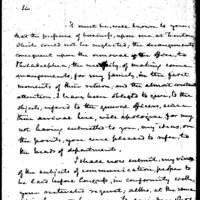 Sir
It must be, well known to you,
that the pressure of business, upon me, at Trenton
which could not be neglected; the derangements
consequent upon the removal of the offices to
Philadelphia; the necessity, of making some
arrangements, for my family, in the first
moments of their return, and the almost constant
attention, I have been obliged to give, to the
objects, referred to the general officers, since
their arrival here, will apologize for my
not having submitted to you, my ideas, on
the points, you were pleased to refer, to
the heads of departments.
I shall now submit, my views
of the subjects of communication, proper to
be laid before Congress, in conformity with
your returned request, altho, at the same